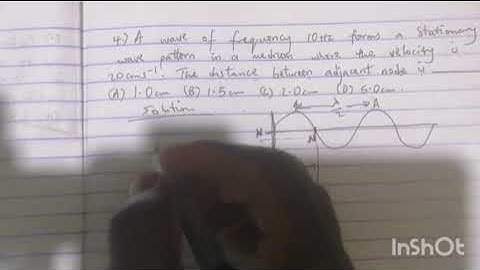 4.) A wave of frequency 10Hz forms a stationary
wave pattern in a medium where the velocity is
20cms⁻¹. The distance between adjacent node is
(A) 1.0cm (B) 1.5cm (C) 2.0cm (D) 5.0cm.
Solution
λ
2 A
N N
InShOt